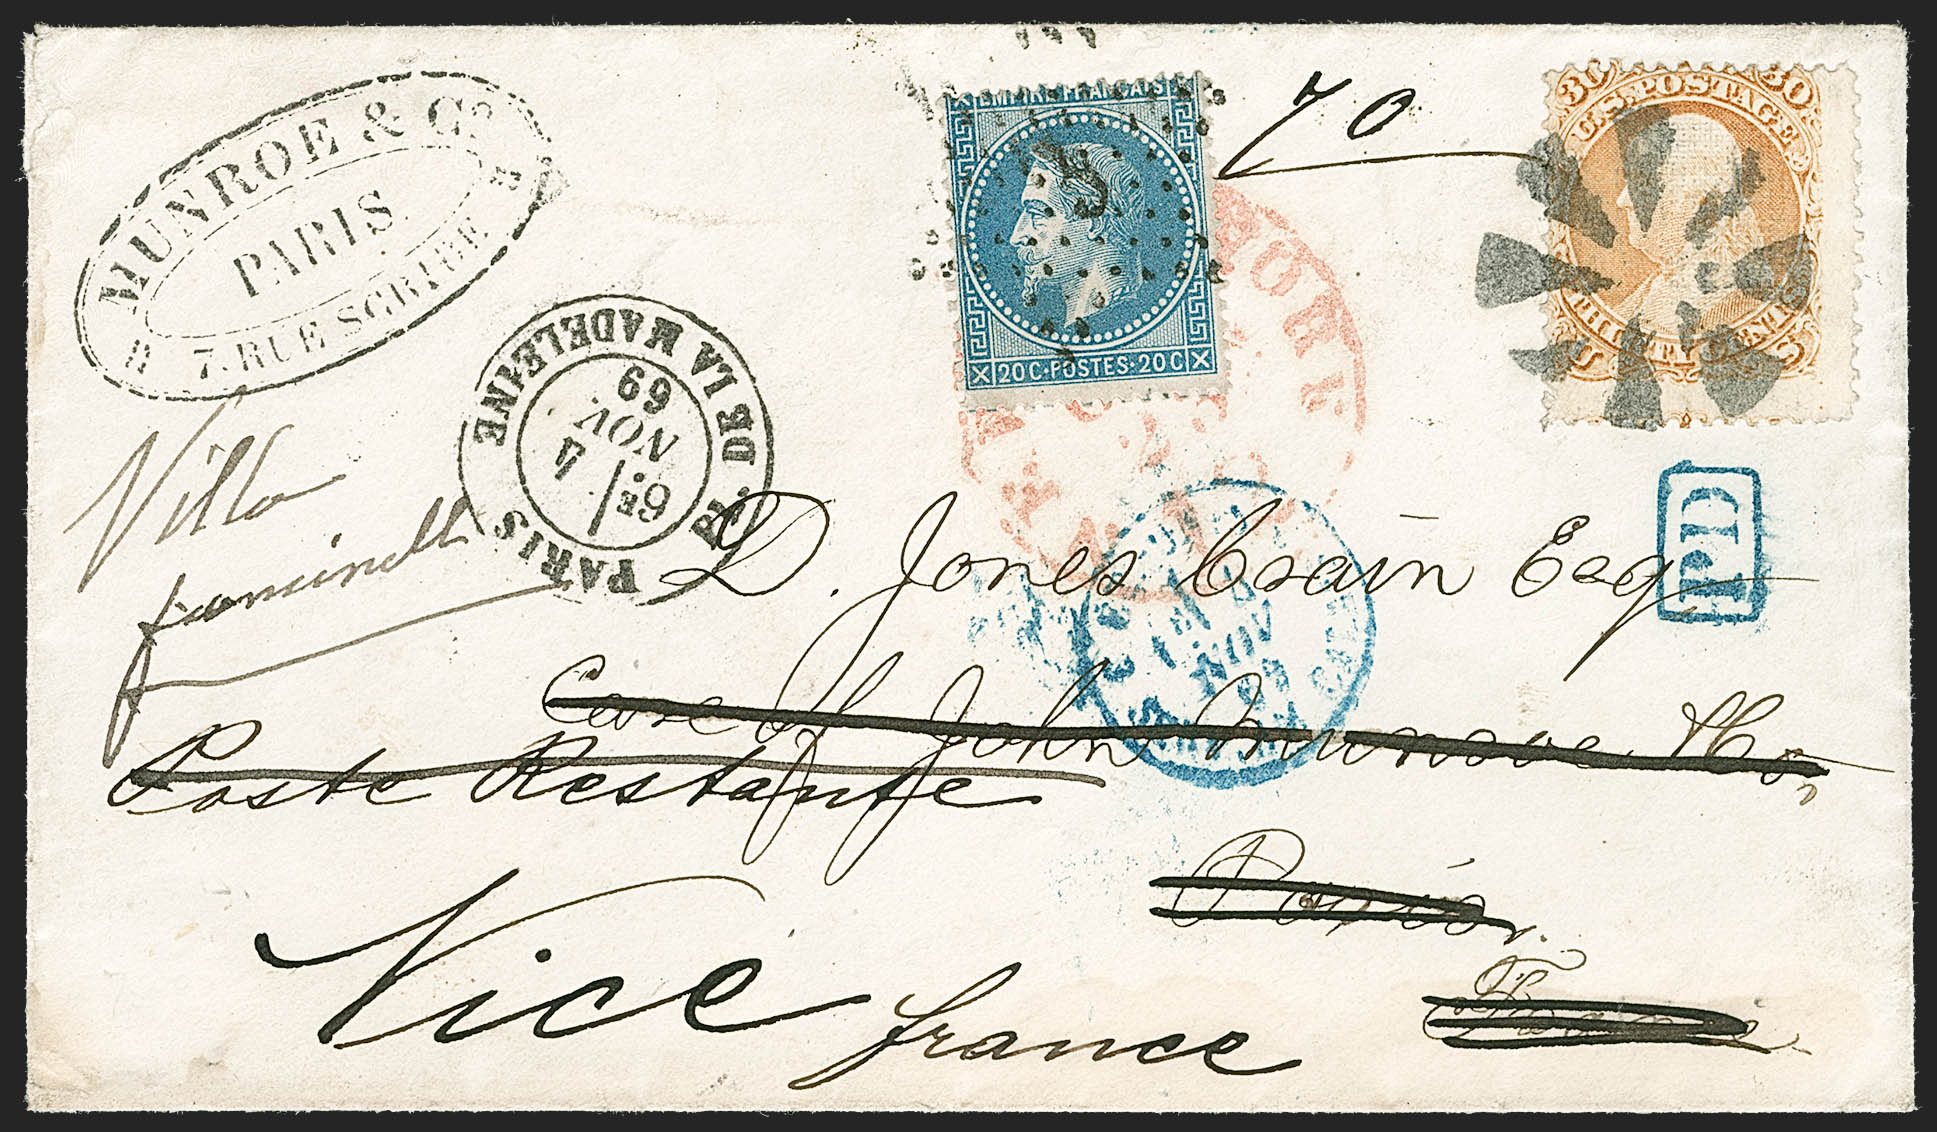 MUNROE & Co
PARIS
7. RUE SCRIBE
EMPIRE FRANÇAIS
20 C · POSTES · 20 C
70
30 30
U.S. POSTAGE
THIRTY CENTS
PARIS R. DE LA MADELEINE
6E
4
NOV
69
PD
Villa
D. Jones Crain Esq
Care of John Munroe & Co,
Poste Restante
Paris.
France
Nice
france